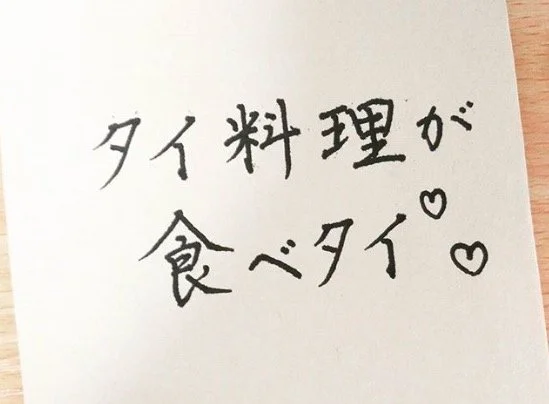 タイ料理が
食べタイ♡♡